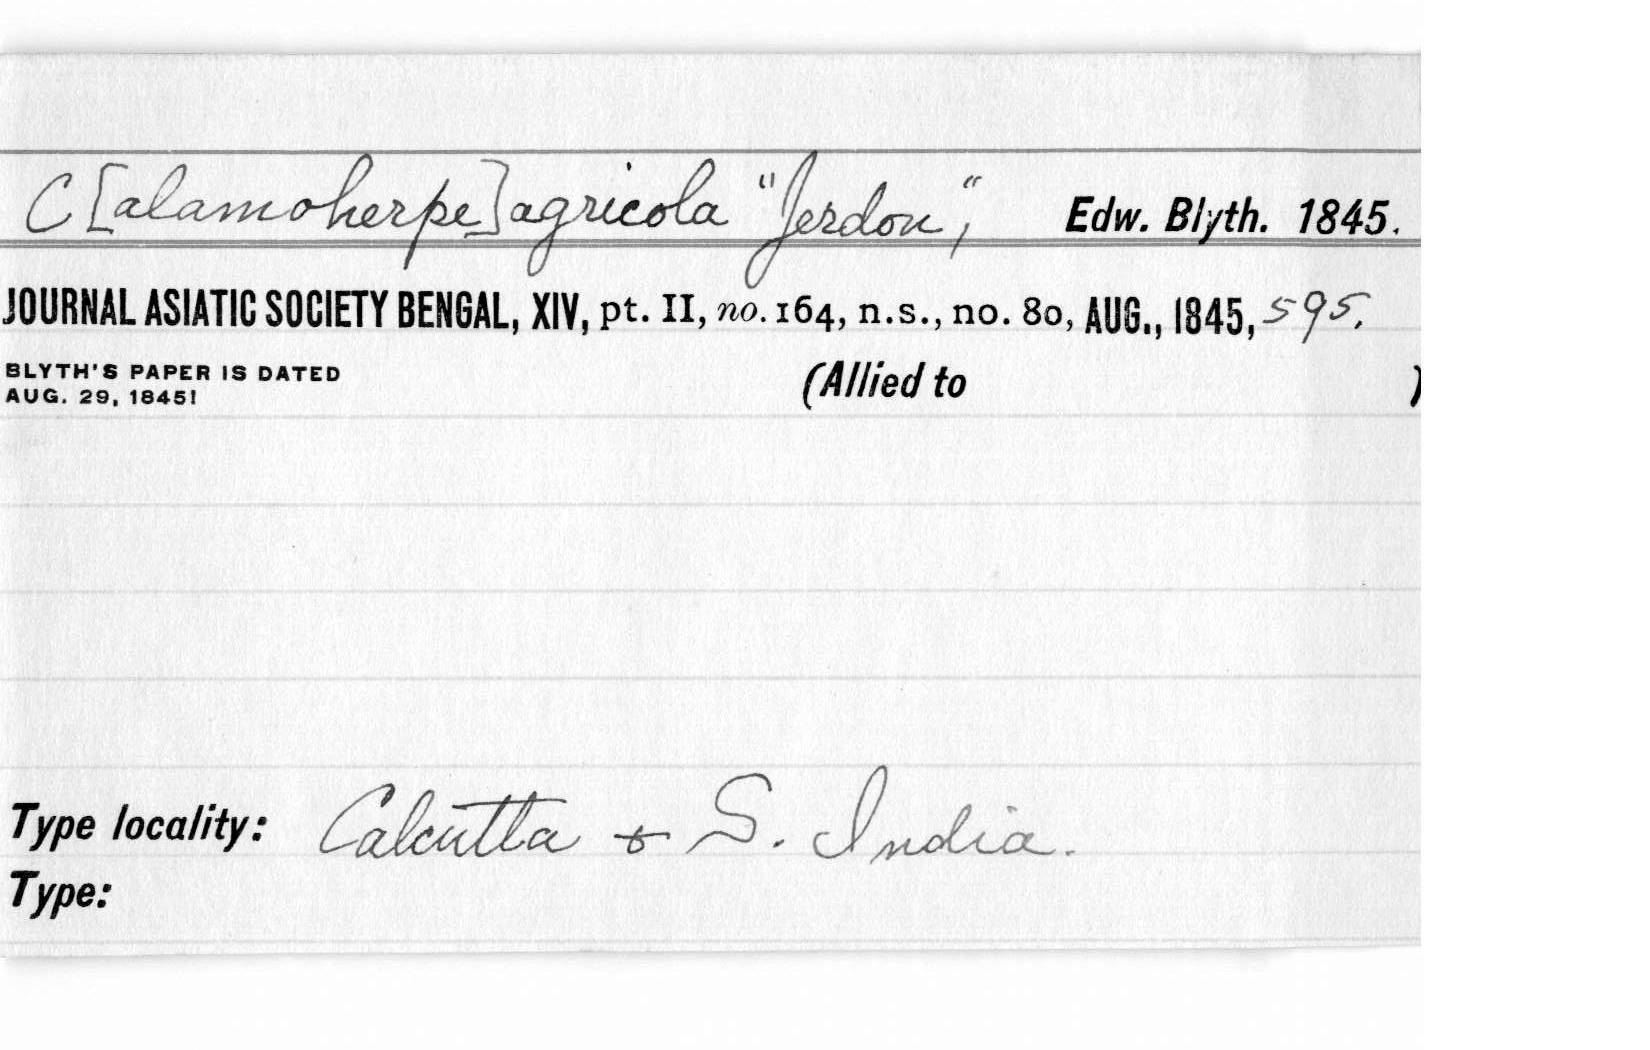 C[alamoherpe] agricola "Jerdon", Edw. Blyth. 1845.
JOURNAL ASIATIC SOCIETY BENGAL, XIV, pt. II, no. 164, n.s., no. 80, AUG., 1845, 595.
BLYTH'S PAPER IS DATED (Allied to )
AUG. 29, 1845!
Type locality: Calcutta & S. India.
Type: